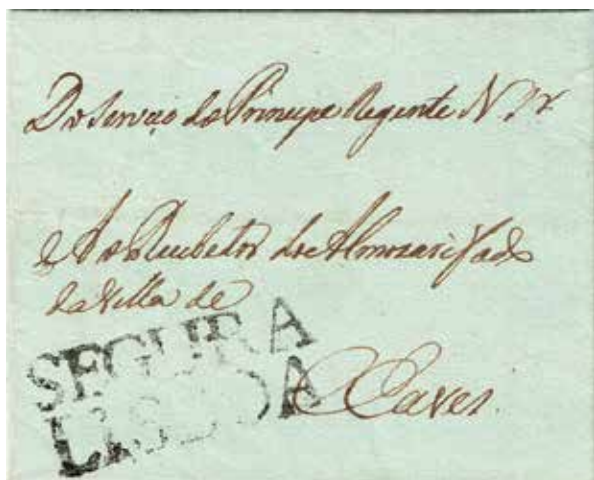 Do Serviço do Principe Regente N. Sr.
Ao Recebedor do Almoxarifado
da Villa de
Chaves
SEGURA
LISBOA